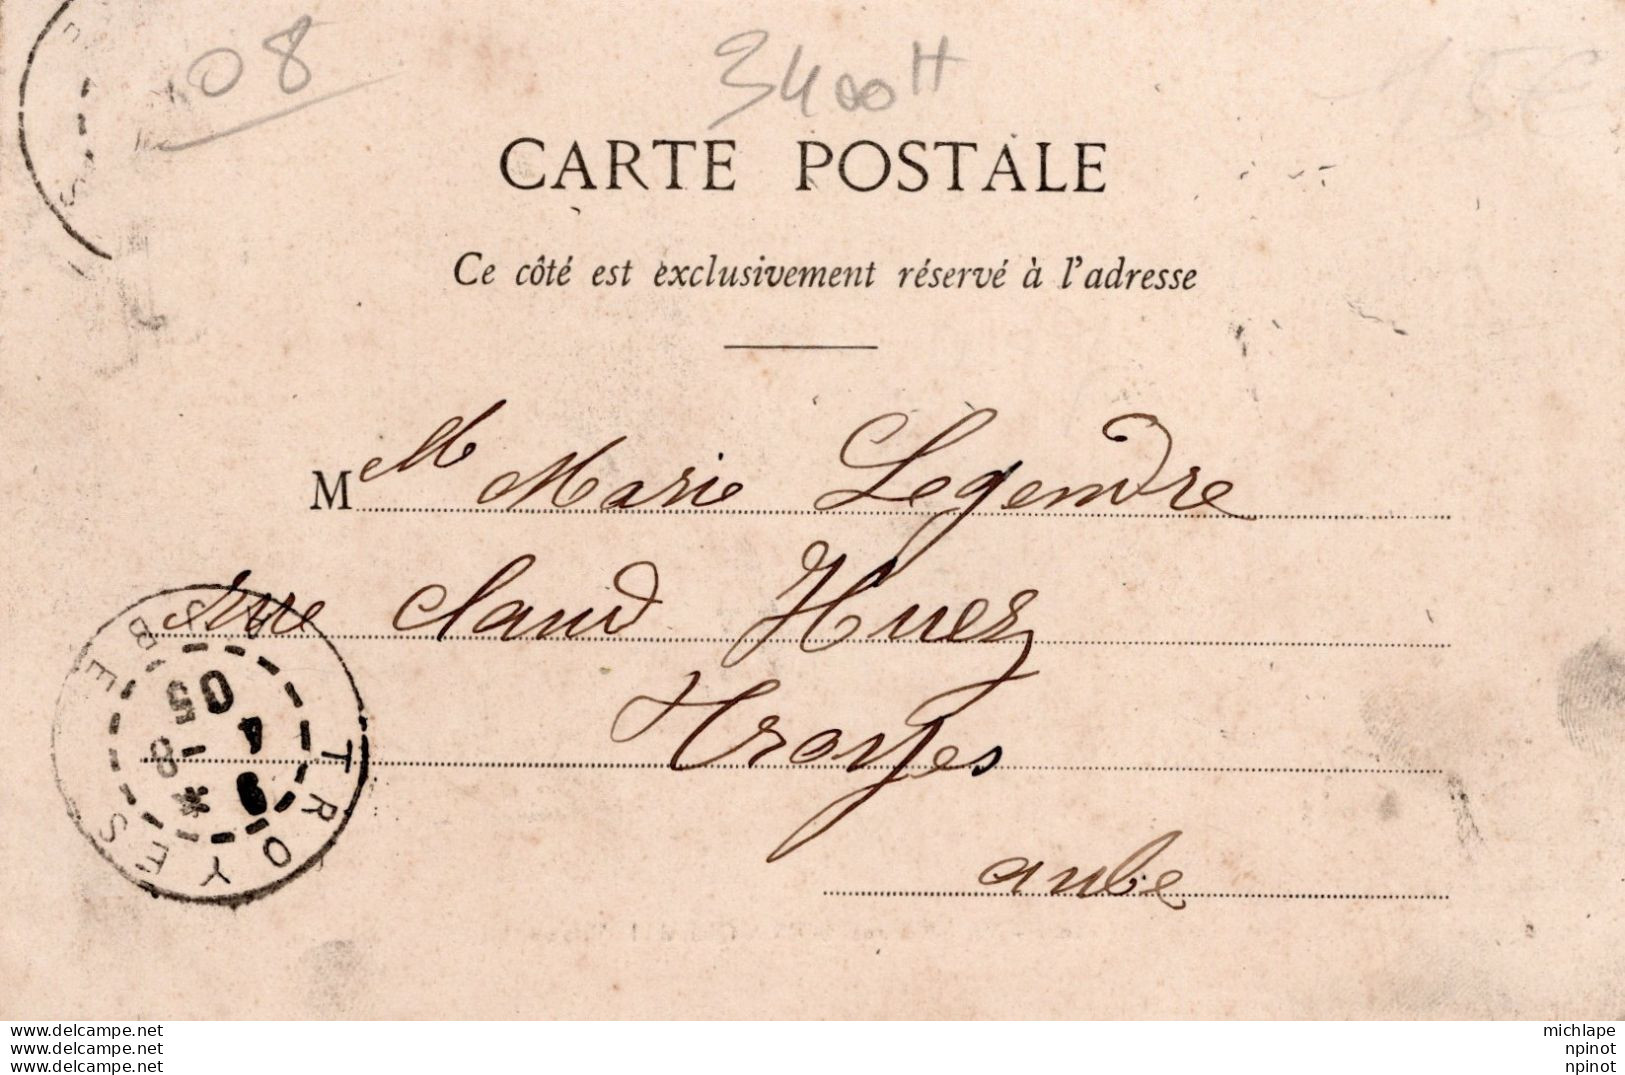 08
3400H
15€
CARTE POSTALE
Ce côté est exclusivement réservé à l'adresse
Melle Marie Legendre
rue Claud Huez
Troyes
aube
TROYES
AUBE
9 * 8
4
05
www.delcampe.net
www.delcampe.be
www.delcampe.net
michlape
npinot
npinot